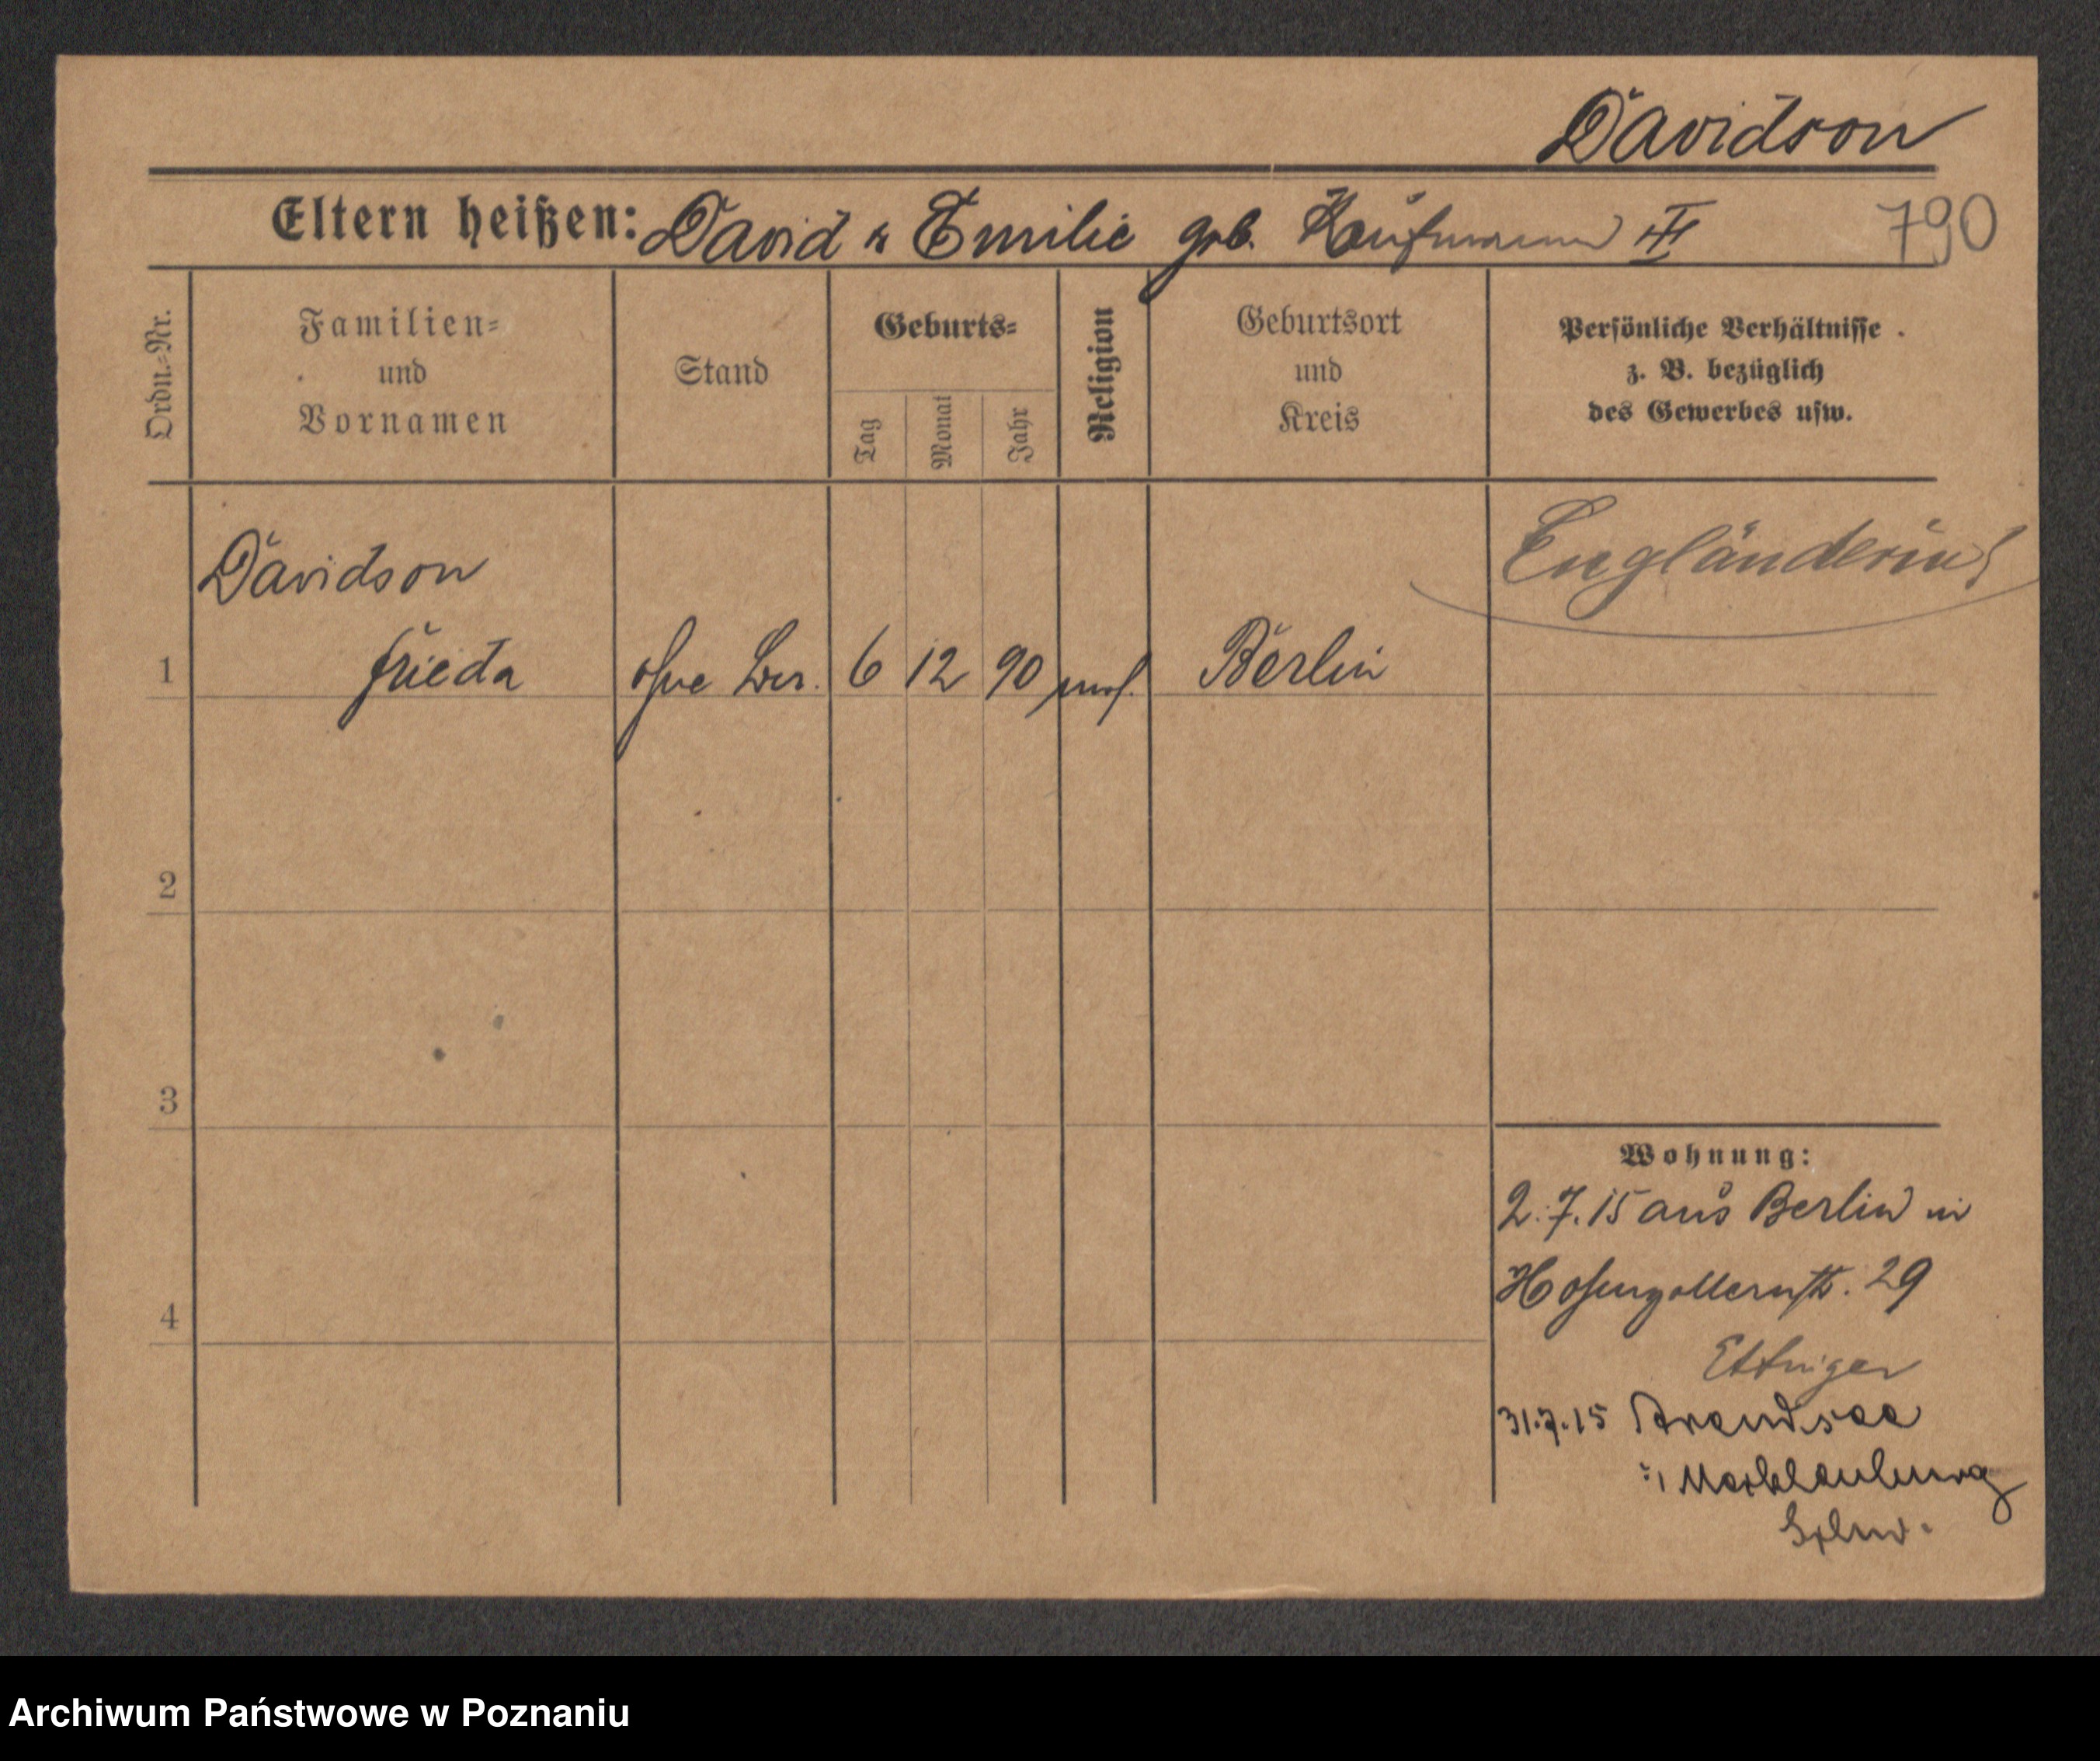 Davidson
Eltern heißen: David u Emilie geb. Kaufmann III 790
Ordn.=Nr.
Familien=
und
Vornamen
Stand
Geburts=
Tag
Monat
Jahr
Religion
Geburtsort
und
Kreis
Persönliche Verhältnisse
z. B. bezüglich
des Gewerbes usw.
Davidson
Engländerin!
1 Frieda ohne 6 12 90 mos. Berlin
2
3
4
Wohnung:
2.7.15 aus Berlin in
Hohenzollernstr. 29
Ettinger
31.7.15 Arendsee
i/ Mecklenburg
Archiwum Państwowe w Poznaniu